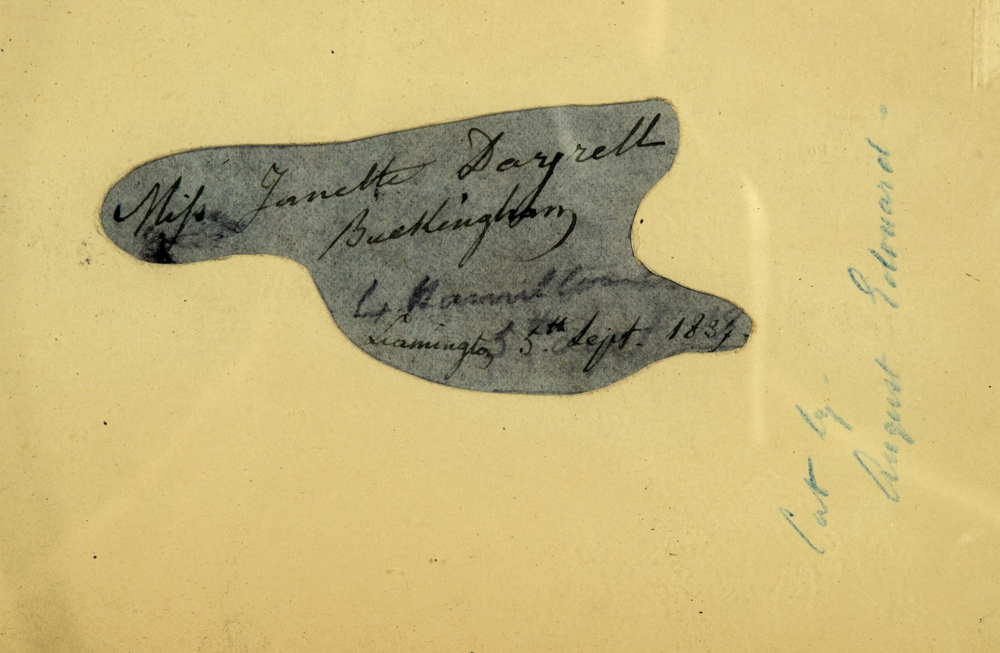 Miss Janette Dayrell
Buckingham
Leamington 5th Sept. 1837.
Cut by
August Edouard -